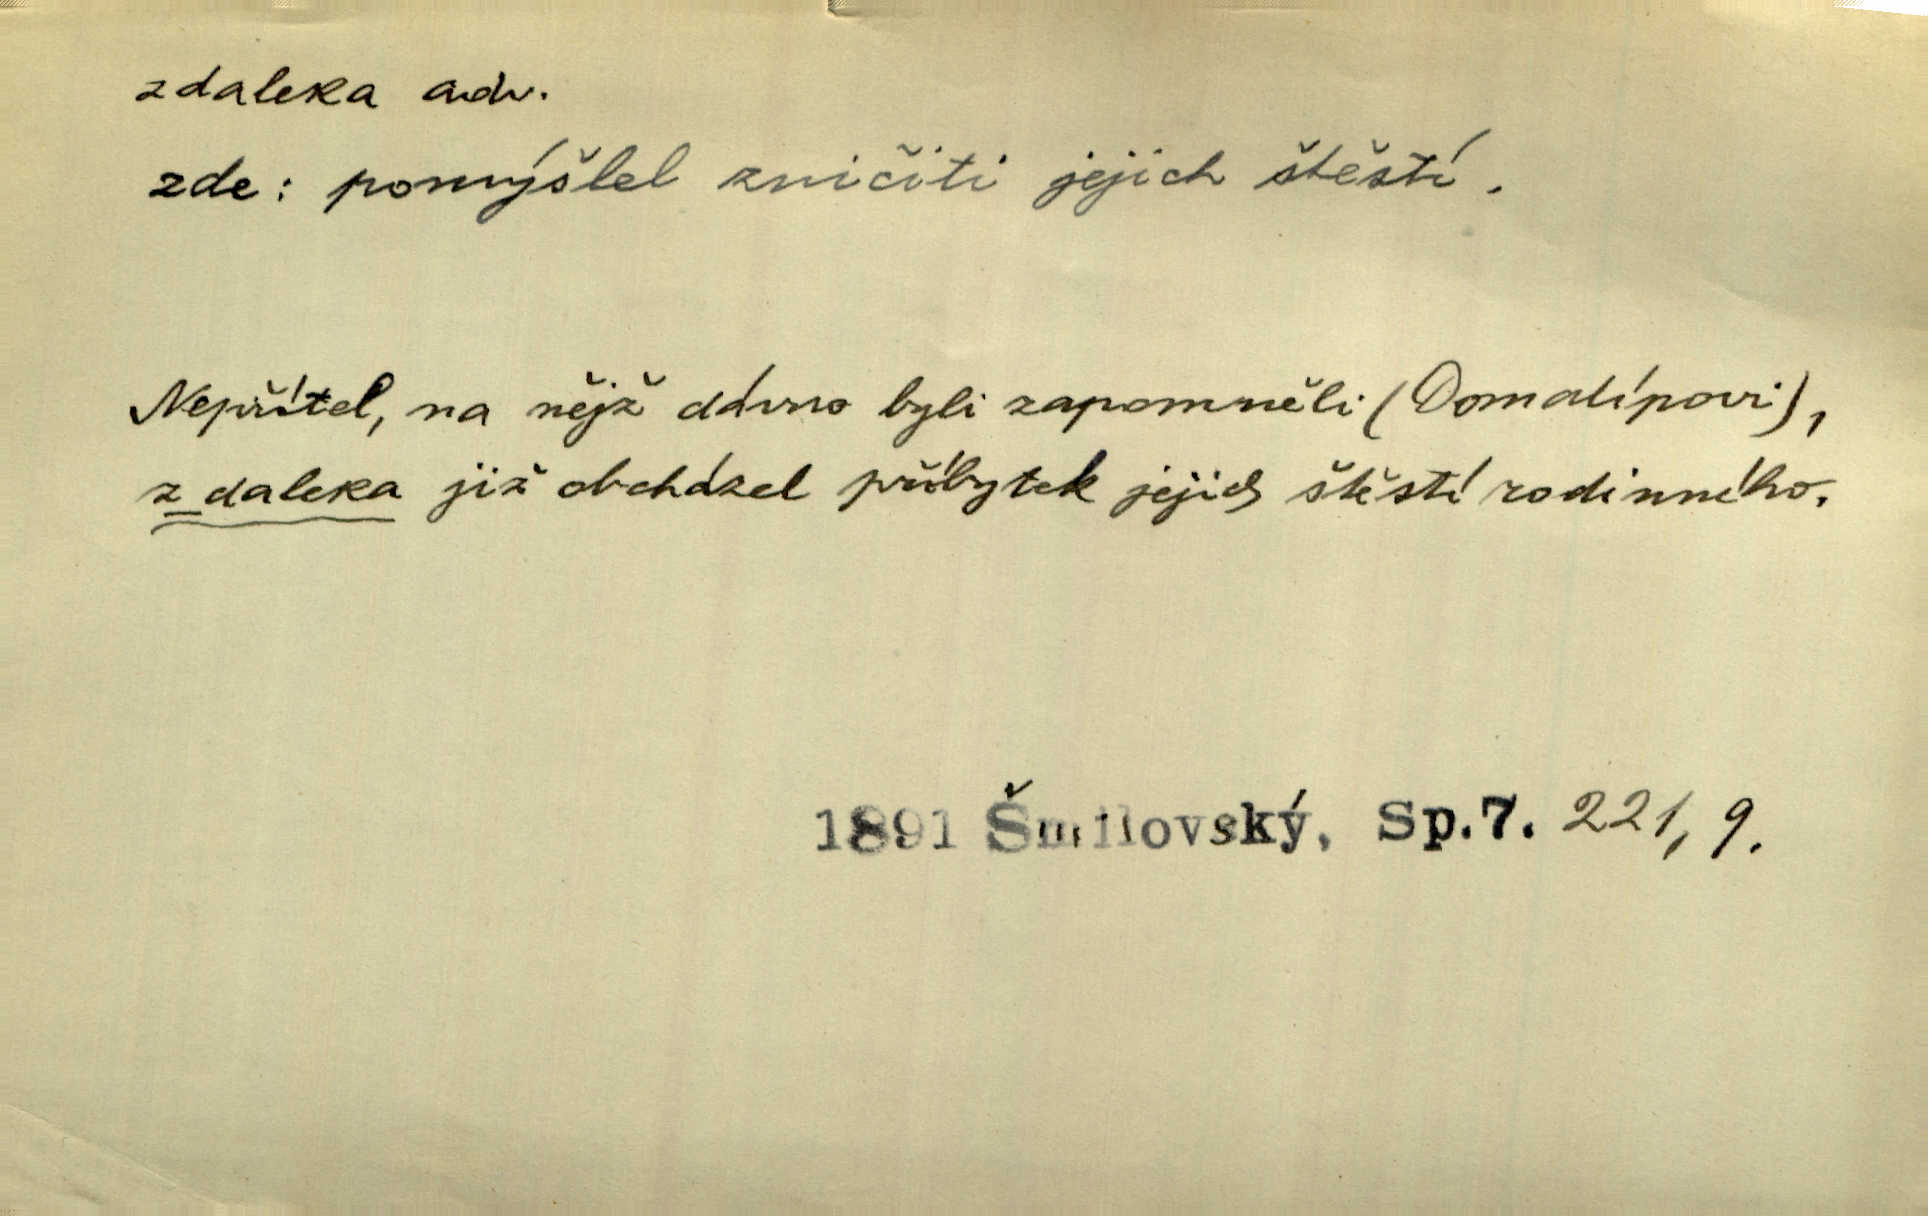 zdaleka adv.
zde: pomýšlel zničiti jejich štěstí.
Nepřítel, na nějž dávno byli zapomněli (Domalípovi),
z daleka již obcházel příbytek jejich štěstí rodinného.
1891 Šmilovský, Sp.7. 221, 9.